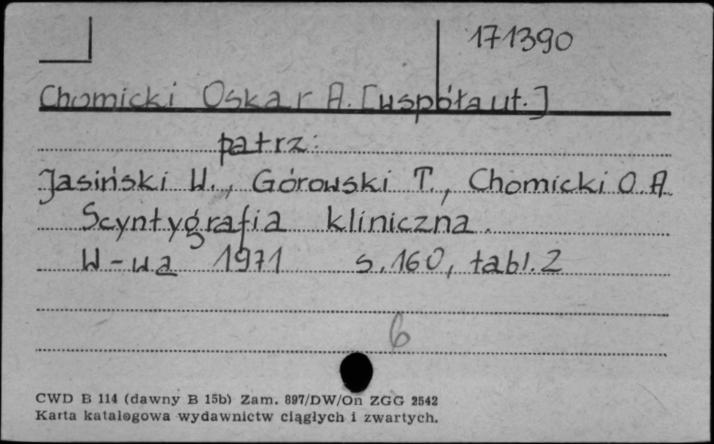 171390
Chomicki Oskar A. [współaut.]
patrz:
Jasiński W., Górowski T., Chomicki O. A
Scyntygrafia kliniczna.
W-wa 1971 s. 160, tabl. 2
6
CWD B 114 (dawny B 15b) Zam. 897/DW/On ZGG 2542
Karta katalogowa wydawnictw ciągłych i zwartych.